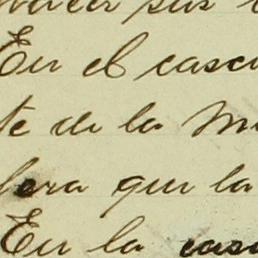 sus
En el casc
te de la M
fera que la
En la casa